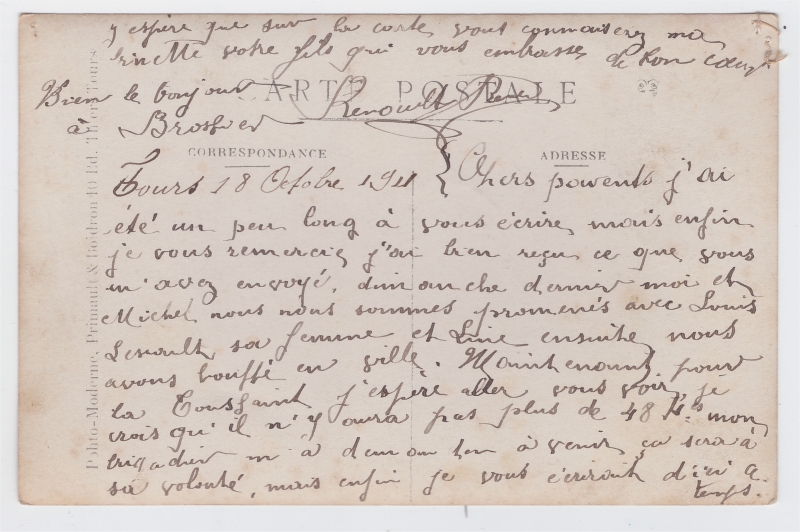 y espère que sur la carte vous connaiserez ma
binette votre fils qui vous embrasse de bon cœur
Bien le bonjour
à Brosfier
Renoult René
CARTE POSTALE
CORRESPONDANCE
ADRESSE
Tours 18 Octobre 1911 Chers parents j'ai
été un peu long à vous écrire mais enfin
je vous remercie j'ai bien reçu ce que vous
m'avez envoyé, dimanche dernier moi et
Michel nous nous sommes promenés avec Louis
sa femme et Line ensuite nous
avons bouffé en ville. Maintenant pour
la Toussaint j'espère aller vous voir, je
crois qu'il n'y aura pas plus de 48 hs mon
brigadier m'a demandé à venir ça sera à
sa volonté, mais enfin je vous écrirait d'ici ce
temps.
Pohto-Moderne, Primault & Boidron 10 Ed. Tours